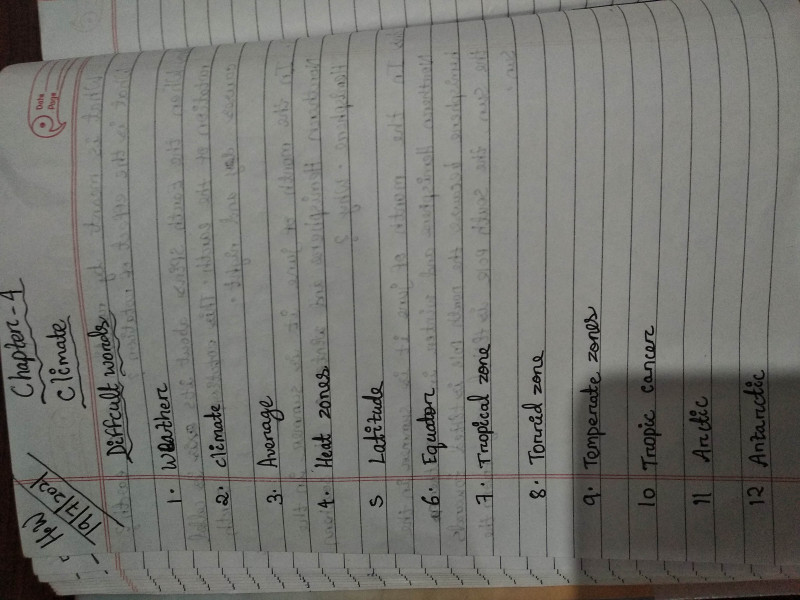 H.W
19/7/2021
Date
Page
Chapter-4
Climate
Difficult words
1. Weather
2. climate
3. Average
4. Heat zones
5 Latitude
6. Equator
7. Tropical zone
8. Torrid zone
9. Temperate zones
10 Tropic cancer
11 Arctic
12 Antarctic